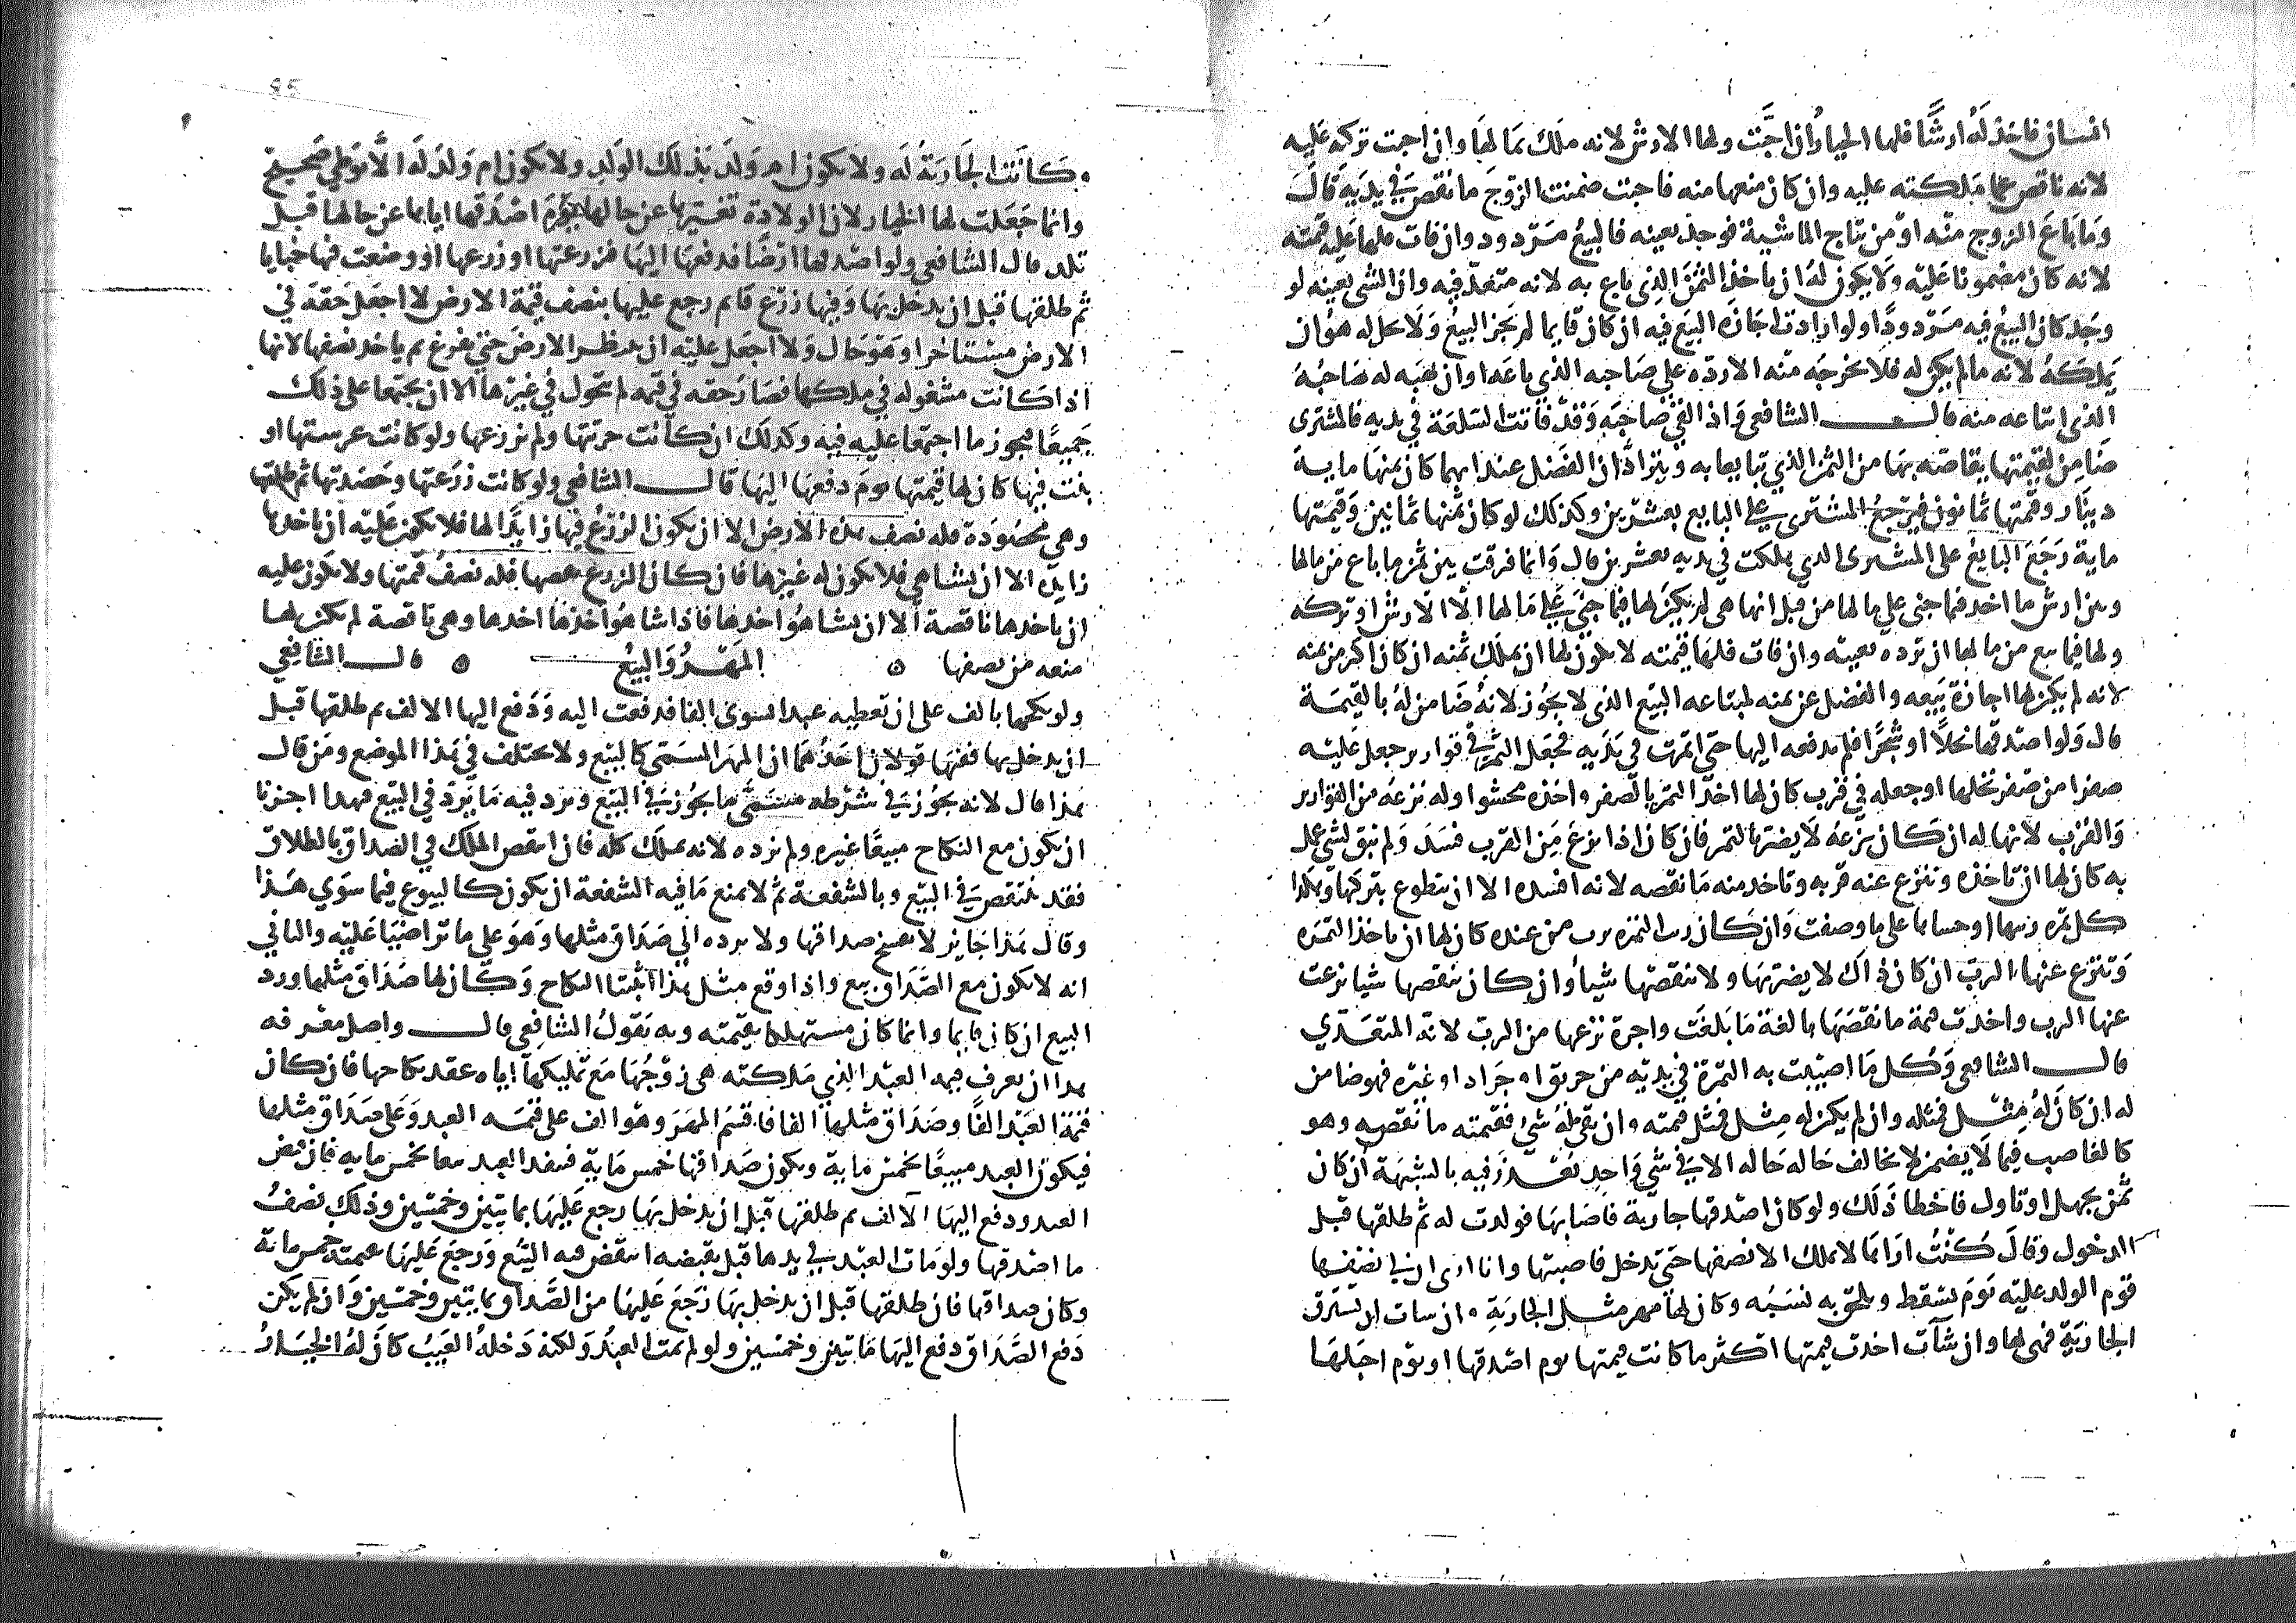 انسان فاخذ له ارشا فلها الخيار ان احبت ولها الارش لانه ملك بمالها وان احبت تركه عليه
لانه ناقص عما ملكته عليه وان كان منعها منه فاحبت ضمنت الزوج ما نقص في يديه قال
وما باع الزوج منه او من نتاج الماشية فوجد بعينه فالبيع مردود وان فات فلها عليه قيمته
لانه كان مضمونا عليه ولا يكون له ان ياخذ الثمن الذي باع به لانه متعد فيه وان الشي بعينه لو
وجد كان البيع فيه مردودا ولو ارادت اجازه البيع فيه ان كان قايما لم يجز البيع ولا حل له هو ان
يملكه لانه مالم يكن له فلا يخرجه منه الا رده على صاحبه الذي باعه او ان يهبه له صاحبه
الذي ابتاعه منه قال الشافعي واذا لقي صاحبه وقد فاتت السلعة في يديه فالمشتري
ضامن لقيمتها يقاصه بها من الثمن الذي تبايعا به ويترادان الفضل عند ايهما كان ثمنها ماية
دينار وقيمتها ثمانون فيرجع المشتري على البايع بعشرين وكذلك لو كان ثمنها ثمانين وقيمتها
ماية رجع البايع على المشتري الذي هلكت في يديه بعشرين قال وانما فرقت بين ثمن ما باع من مالها
وبين ارش ما اخذ فيما جنى على مالها من قبل انها هي لم يكن لها فيما جني على مالها الا الارش او تركه
ولها فيما بيع من مالها ان ترده بعينه وان فات فلها قيمته لا يكون لها ان يملك ثمنه ان كان اكثر من ثمنه
لانه لم يكن لها اجازة بيعه والفضل عن ثمنه لمبتاعه البيع الذي لا يجوز لانه ضامن له بالقيمة
قال ولو اصدقها نخلا او شجرا فلم يدفعه اليها حتى اثمرت في يديه فجعل الثمر في قوارير جعل عليه
صقرا من صقر نخلها او جعله في قرب كان لها اخذ الثمر بالصقر واخذه محشوا وله نزعه من القوارير
والقرب لانها له ان كان نزعه لا يضر بالثمر فان كان اذا نزع من القرب فسد ولم يبق لشي عمل
به كان لها ان تاخذه وتنزع عنه قربه وتاخذ منه ما نقصه لانه افسده الا ان يتطوع بتركها وهكذا
كل ثمره ربها او حساها على ما وصفت وان كان رب الثمره برب من عنده كان لها ان ياخذ الثمره
وتنزع عنها الرب ان كان ذاك لا يضر بها ولا ينقصها شيا وان كان ينقصها شيا نزعت
عنها الرب واخذت قيمة ما نقصها بالغة ما بلغت واجرة نزعها من الرب لانه المتعدي
قال الشافعي وكل ما اصيبت به الثمرة في يديه من حريق او جراد او غيره فهو ضامن
له ان كان له مثل فمثله وان لم يكن له مثل فمثل قيمته وان بقي له شي فقيمته ما نقصه وهو
كالغاصب فيما لا يضمن لا يخالف حاله حاله الا في شي واحد يعذر فيه بالشبهة ان كان
ممن يجهل او تاول فاخطا ذلك ولو كان اصدقها جارية فاصابها فولدت له ثم طلقها قبل
الدخول وقال كنت اراها لا يملك الا نصفها حتى تدخل فاصبتها وانا ارى ان لي نصفها
قوم الولد عليه يوم يسقط ويلحق به نسبه وكان لها مهر مثل الجارية وان شات ان تسترق
الجارية فهي لها وان شآت اخذت قيمتها اكثر ما كانت قيمتها يوم اصدقها او يوم احبلها
وكانت الجارية له ولا يكون ام ولد بذلك الولد ولا يكون ام ولد له الا بوطي صحيح
وانما جعلت لها الخيار لان الولادة تغيرها عن حالها يوم اصدقها اياها عن حالها قبل
تلد قال الشافعي ولو اصدقها ارضا فدفعها اليها فزرعتها او زرعها او وضعت فيها خبايا
ثم طلقها قبل ان يدخل بها وفيها زرع قايم رجع عليها بنصف قيمة الارض لا اجعل حقه في
الارض مستاخرا وهو حال ولا اجعل عليه ان ينظر الارض حتى يفرغ ثم ياخذ نصفها لانها
اذا كانت مشغوله في ملكها فصار حقه في قيمه لم يتحول في غيرها الا ان يجتمعا على ذلك
جميعا فيجوز ما اجتمعا عليه فيه وكذلك ان كانت حرثتها ولم يزرعها ولو كانت غرستها او
بنت فيها كان لها قيمتها يوم دفعها اليها قال الشافعي ولو كانت زرعتها وحصدتها ثم طلقها
وهي محصودة فله نصف هذه الارض الا ان يكون الزرع فيها زايدا لها فلا يكون عليه ان ياخذها
زايده الا ان يشا هي فلا يكون له غيرها فان كان الزرع نقصها فله نصف قيمتها ولا يكون عليه
ان ياخذها ناقصة الا ان يشا هو اخذها فاذا شا هو اخذها اخذها وهي ناقصة لم يكن لها
منعه من نصفها ه المهر والبيع ه قال الشافعي
ولو نكحها بالف على ان تعطيه عبدا يسوى الفا فدفعت اليه ودفع اليها الالف ثم طلقها قبل
ان يدخل بها ففيها قولان احدهما ان المهر المسمى كالبيع ولا يختلف في هذا الموضع ومن قال
هذا قال لانه يجوز في شرطه مسمى ما يجوز في البيع ويرد فيه ما يرد في البيع فهذا اجزنا
ان يكون مع النكاح مبيعا غيره ولم نرده لانه يملك كله فان انتقص الملك في الصداق بالطلاق
فقد ينتقص في البيع وبالشفعة ثم لا يمنع ما فيه الشفعة ان يكون كالبيوع فيما سوي هذا
وقال هذا جايز لا يفسخ صداقها ولا يرده الي صداق مثلها وهو على ما تراضيا عليه والثاني
انه لا يكون مع الصداق بيع واذا وقع مثل هذا اثبتنا النكاح وكان لها صداق مثلها ورد
البيع ان كان قايما وانما كان مستهلكا بقيمته وبه يقول الشافعي قال واصل معرفه
هذا ان يعرف قيمه العبد الذي ملكته هي زوجها مع تمليكها اياه عقد نكاحها فان كان
قيمة العبد الفا وصداق مثلها الفا فاقسم المهر وهو الف على قيمه العبد وعلى صداق مثلها
فيكون العبد مبيعا بخمس ماية ويكون صداقها خمس ماية فينفذ العبد بيعا بخمس ماية فان قبض
العبد ودفع اليها الالف ثم طلقها قبل ان يدخل بها رجع عليها بمايتين وخمسين وذلك نصف
ما اصدقها ولو مات العبد في يدها قبل يقبضه انتقض فيه البيع ورجع عليها بقيمته خمس ماية
وكان صداقها فان طلقها قبل ان يدخل بها رجع عليها من الصداق بمايتين وخمسين وان لم يكن
دفع الصداق دفع اليها مايتين وخمسين ولو لم يمت العبد ولكنه دخله العيب كان له الخيار